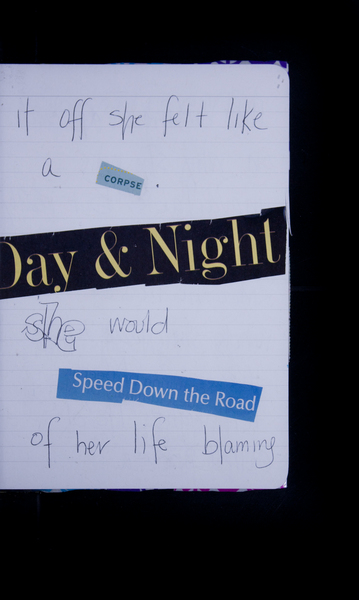 it off she felt like
a CORPSE.
Day & Night
she would
Speed Down the Road
of her life blaming